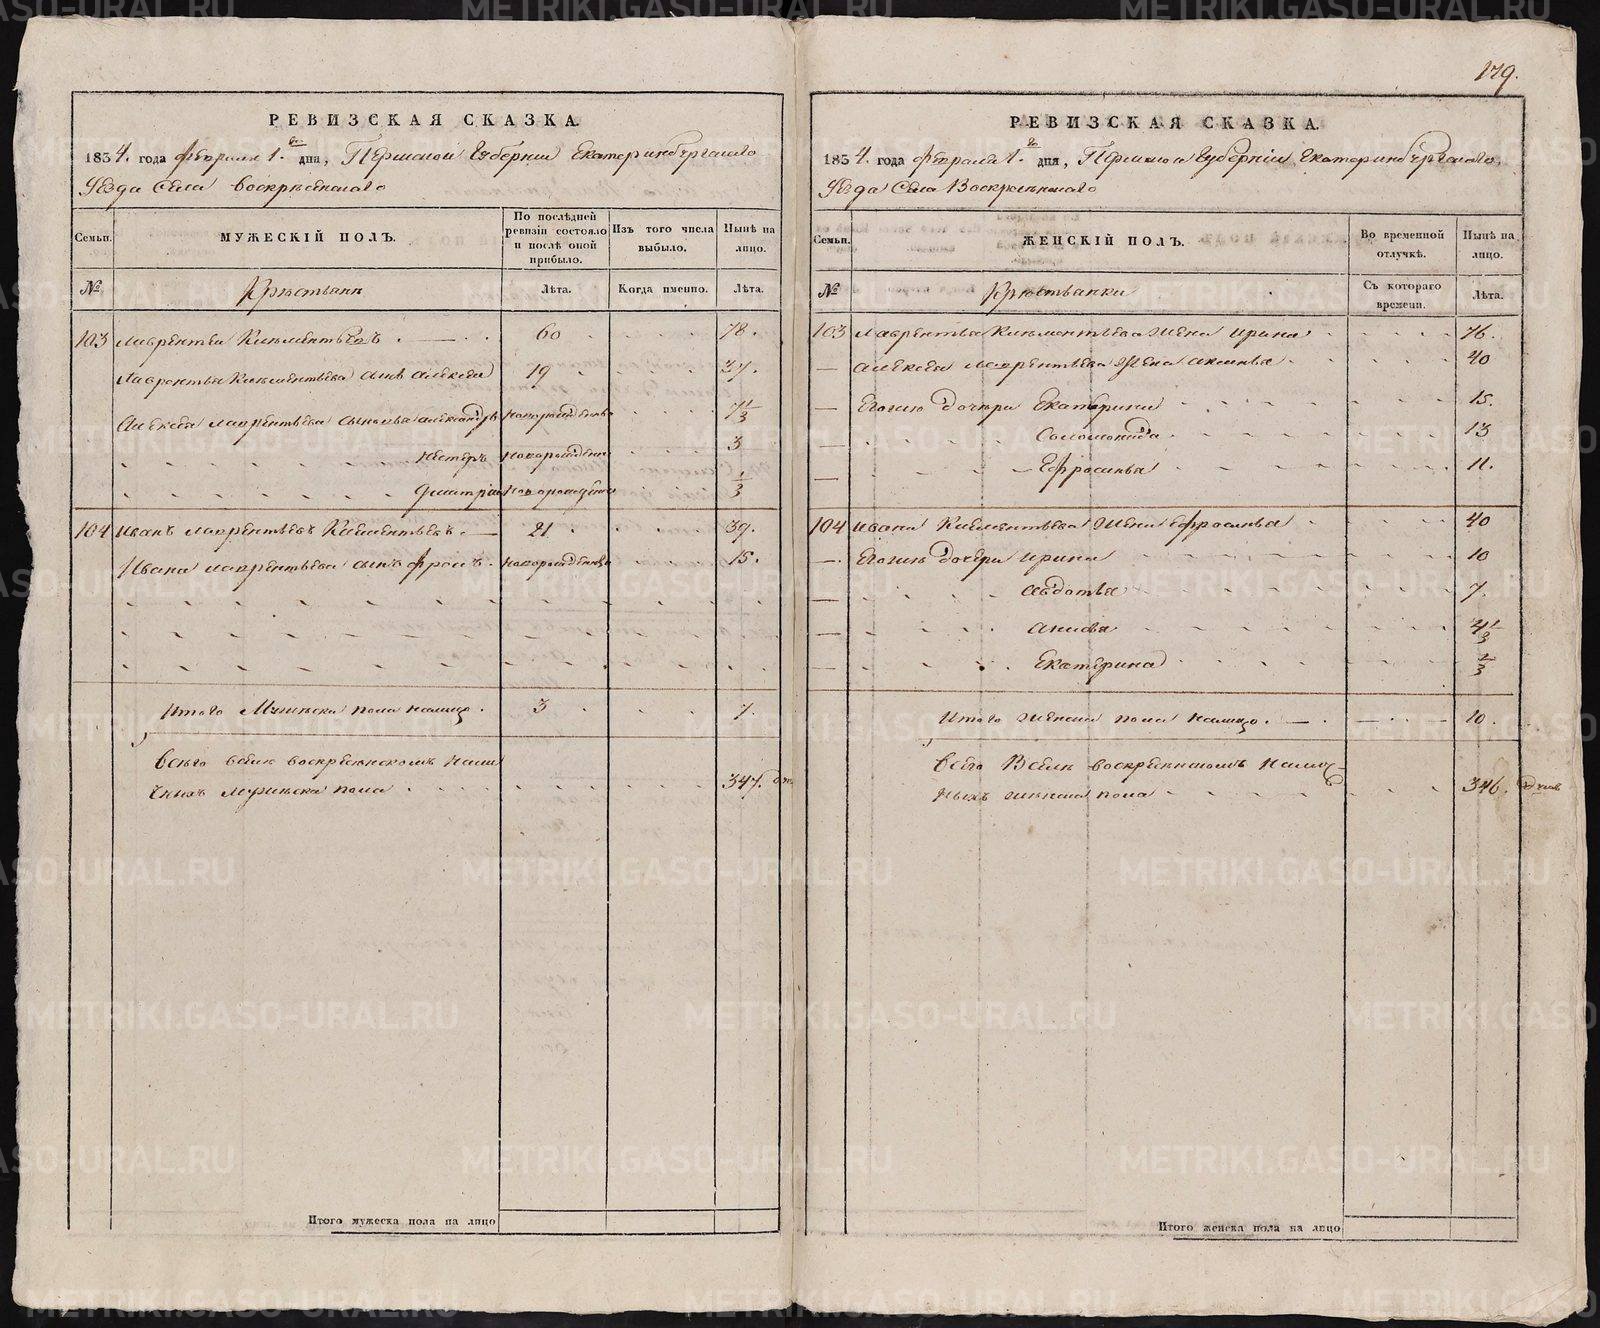 179.
РЕВИЗСКАЯ СКАЗКА.
1834. года февраля 1. дня, Пермской Губернии Екатеринбургскаго
Уезда Села Воскресенскаго
Семьи.
МУЖЕСКІЙ ПОЛЪ.
По послѣдней ревизіи состояло и послѣ оной прибыло.
Изъ того числа выбыло.
Нынѣ на лицо.
№
Крестьяне
Лѣта.
Когда именно.
Лѣта.
103 Лаврентей Климентьевъ 60 78.
Лаврентья Климентьева сынъ Алексей 19 37.
Алексея Лаврентьева сыновья Александръ новорожденъ 7 1/3
Нестеръ новорожденъ 3
Дмитрій новорожденъ 1/3
104 Иванъ Лаврентьевъ Климентьевъ. 21 39.
Ивана Лаврентьева сынъ Фролъ. новорожденъ 15.
Итого Мужеска пола налицо. 3 7.
Всего в селе воскресенскомъ нали
чныхъ мужеска пола 347.
Итого мужеска пола на лицо
РЕВИЗСКАЯ СКАЗКА.
1834. года февраля 1. дня, Пермской Губерніи Екатеринбургскаго
Уезда Села Воскресенскаго
Семьи.
ЖЕНСКІЙ ПОЛЪ.
Во временной отлучкѣ.
Нынѣ на лицо.
№
Крестьянки
Съ котораго времени.
Лѣта.
103 Лаврентья Климентьева жена Ирина 76.
Алексея Лаврентьева жена Аксинья 40
Егожъ дочери Екатерина 15.
Соломонида 13
Ефросинья 11.
104 Ивана Климентьева жена Ефросинья 40
Егожъ дочери Ирина 10
Авдотья 7.
Анисья 4 1/3
Екатерина 1/3
Итого женска пола налицо. 10.
Всего в селе воскресенскомъ налич-
ныхъ женска пола 346. душъ
Итого женска пола на лицо
METRIKI.GASO-URAL.RU